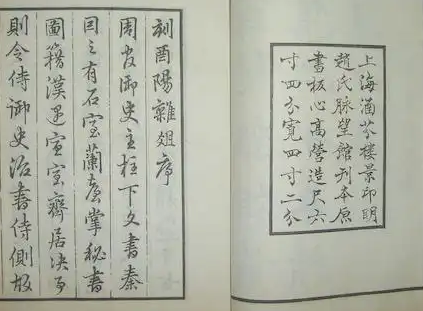 上海涵芬樓景印明
趙氏脈望館刊本原
書板心高營造尺六
寸四分寬四寸二分
刻酉陽雜俎序
周官御史主柱下文書秦
因之有石室蘭臺掌秘書
圖籍漢宣室齋居決事
則令侍御史治書侍側故